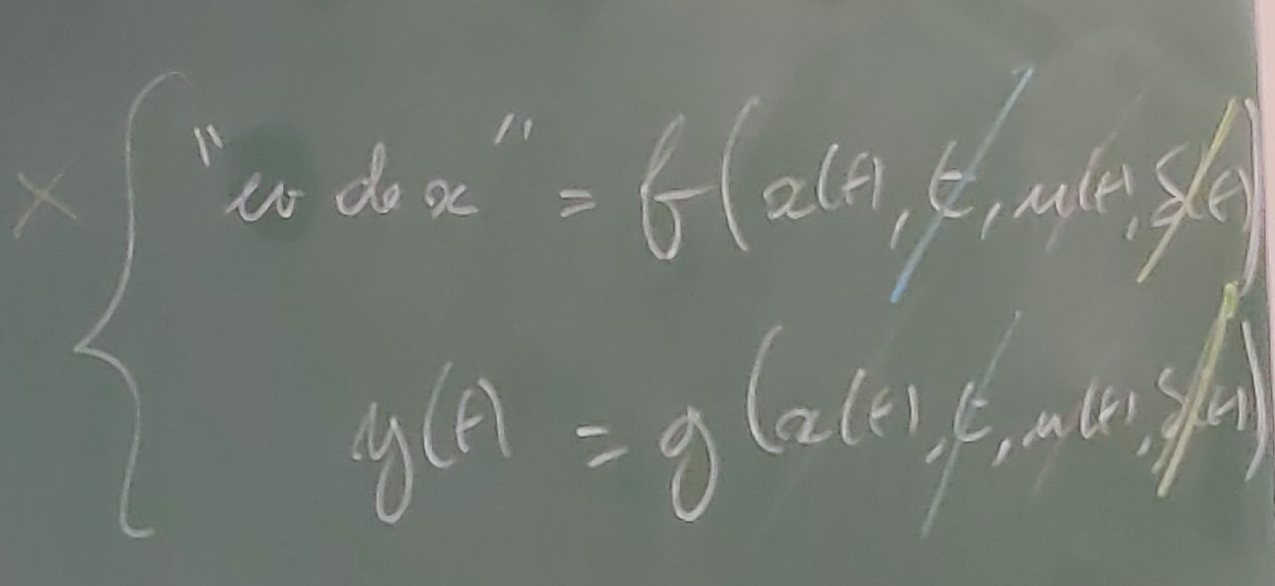 × { "ev de x" = f(x(t), t, u(t), δ(t))
y(t) = g(x(t), t, u(t), δ(t))